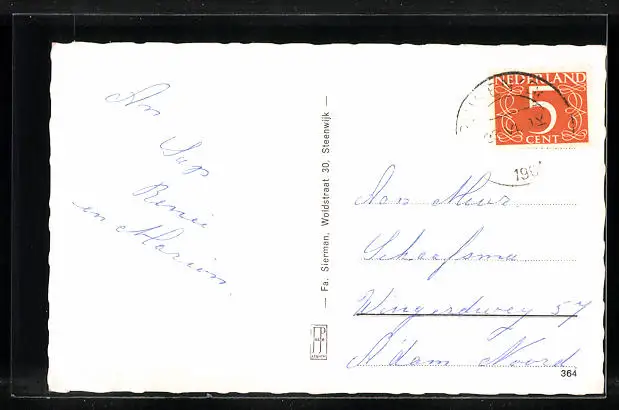 An
Sap
Renéi
en Marion.
— Fa. Sierman, Woldstraat 30, Steenwijk —
NEDERLAND
5
CENT
196
Aan Meur.
Schaafsma
Wingerdweg 57
A'dam Noord.
364